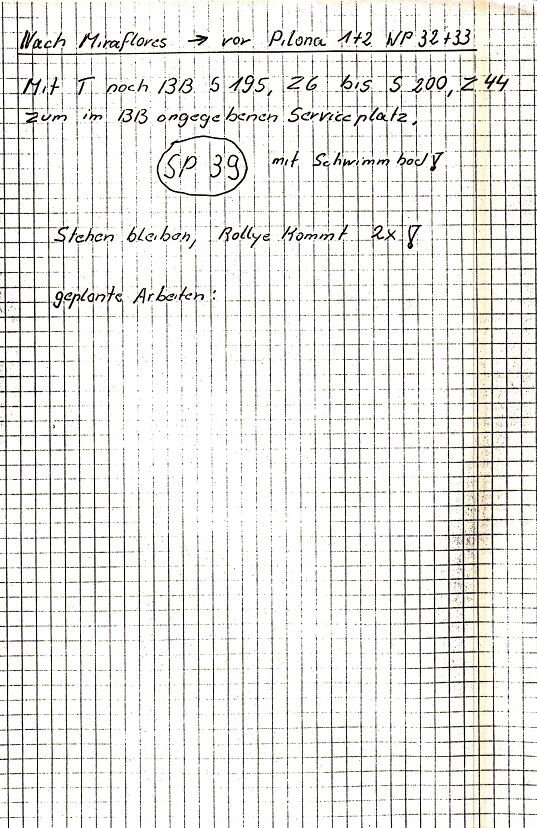 Nach Miraflores → vor Pilona 1+2 WP 32+33
Mit T nach BB S 195, Z6 bis S 200, Z 44
zum im BB angegebenen Serviceplatz,
SP 39 mit Schwimmbad!
Stehen bleiben, Rallye kommt 2x!
geplante Arbeiten: